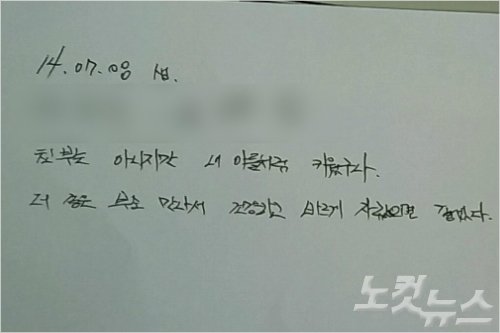 14.07.00 생.
친부는 아니지만 내 아들처럼 키웠구나.
더 좋은 부모 만나서 건강하고 바르게 자랐으면 좋겠다.
노컷뉴스